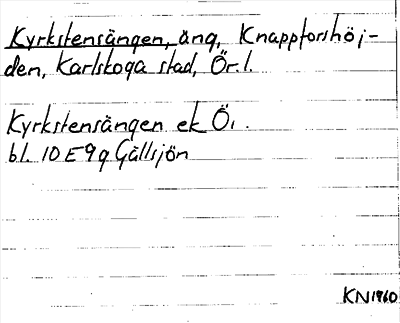 Kyrkstensängen, äng, Knappforshöj-
den, Karlskoga stad, Ör. l.
Kyrkstensängen ek Ö.
bl. 10 E 9 g Gällsjön
KN 1960